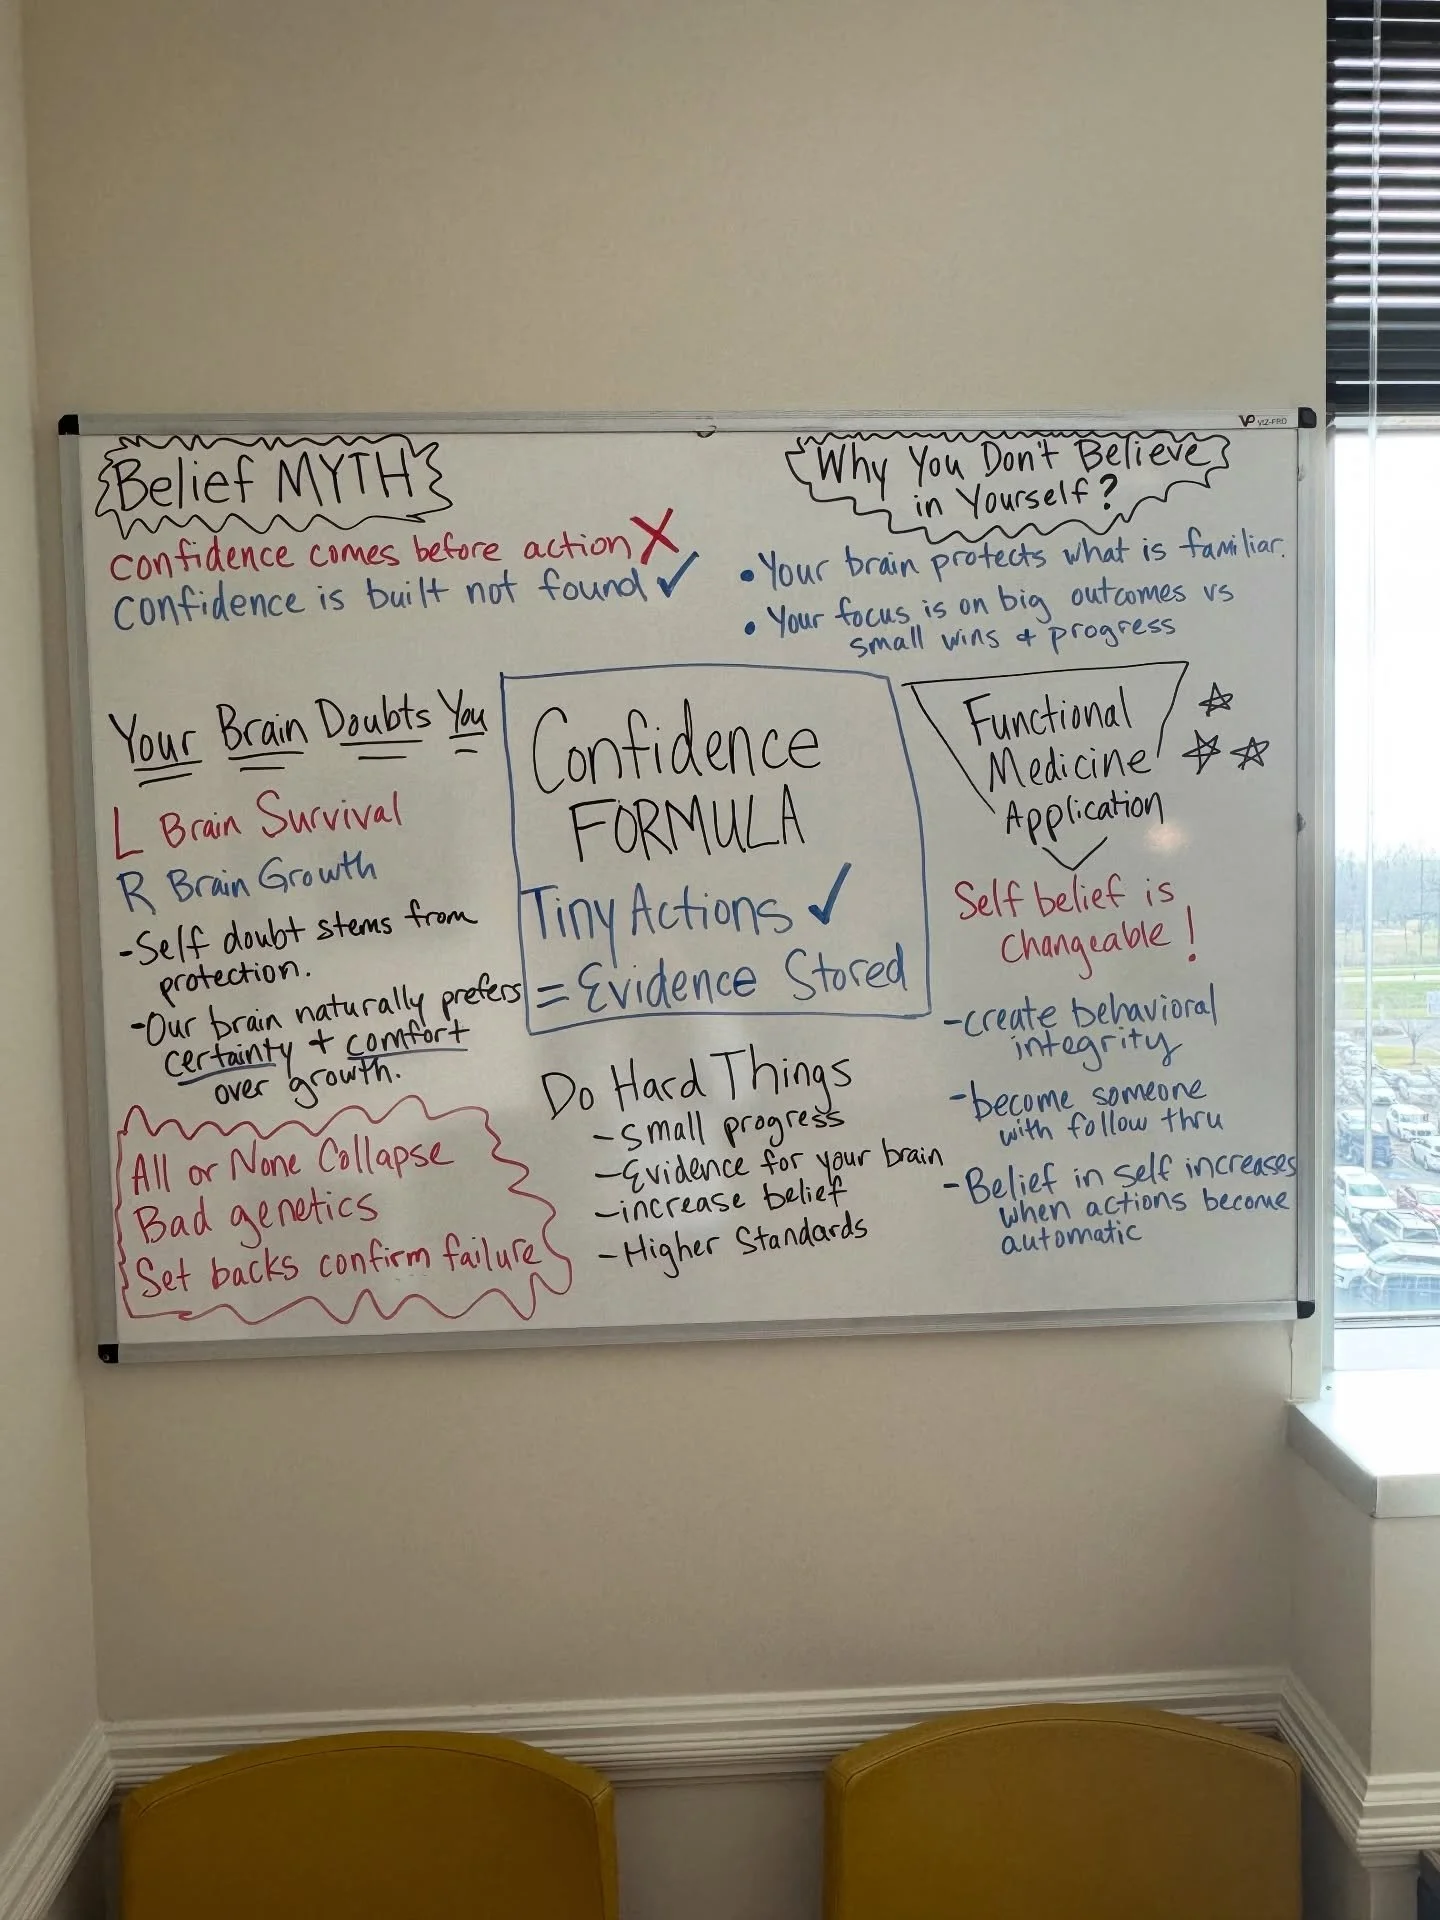 VP VIZ-PRO
Belief MYTH
confidence comes before action X
confidence is built not found ✓
Why You Don't Believe
in Yourself?
• Your brain protects what is familiar.
• Your focus is on big outcomes vs
small wins + progress
Your Brain Doubts You
L Brain Survival
R Brain Growth
-Self doubt stems from
protection.
-Our brain naturally prefers
certainty + comfort
over growth.
All or None Collapse
Bad genetics
Set backs confirm failure
Confidence
FORMULA
Tiny Actions ✓
= Evidence Stored
Do Hard Things
-small progress
-Evidence for your brain
-increase belief
-Higher Standards
Functional
Medicine
Application
Self belief is
changeable!
-create behavioral
integrity
-become someone
with follow thru
-Belief in self increases
when actions become
automatic